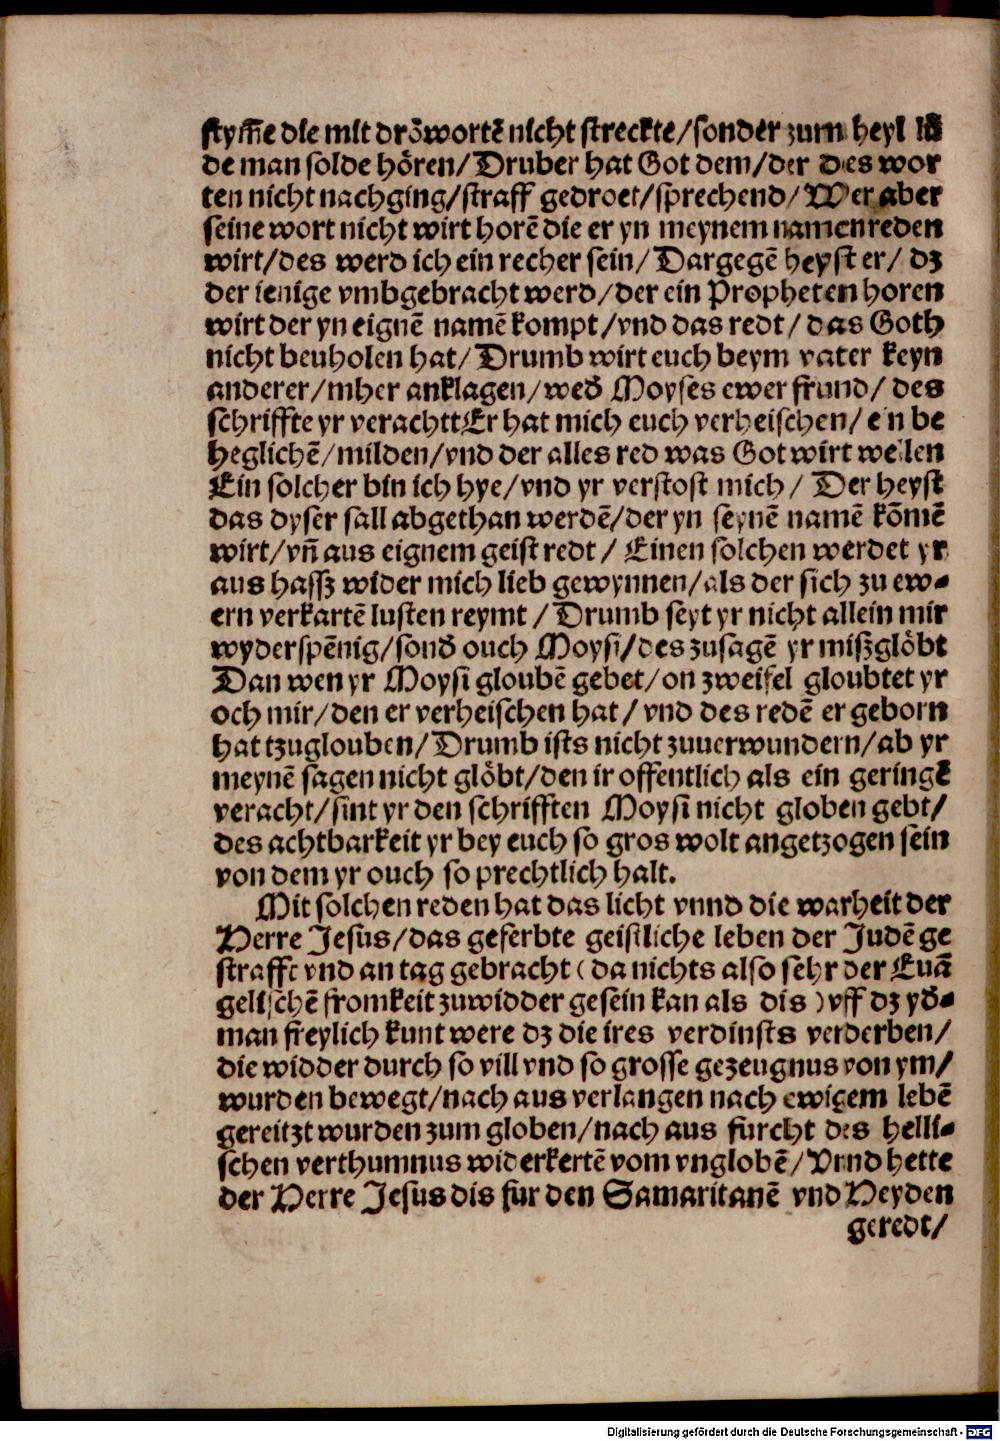 stym̃e die mit drõwortẽ nicht streckte/sonder zum heyl lũ
de man solde hören/Druber hat Got dem/der des wor
ten nicht nachging/straff gedroet/sprechend/Wer aber
seine wort nicht wirt horẽ die er yn meynem namen reden
wirt/des werd ich ein recher sein/Dargegẽ heyst er/ dz
der ienige vmbgebracht werd/der ein Propheten horen
wirt der yn eignẽ namẽ kompt/vnd das redt/das Goth
nicht beuholen hat/Drumb wirt euch beym vater keyn
anderer/mher anklagen/wed̃ Moyses ewer frund/ des
schriffte yr verachtt Er hat mich euch verheischen/ein be
heglichẽ/milden/vnd der alles red was Got wirt wellen
Ein solcher bin ich hye/vnd yr verstost mich/ Der heyst
das dyser sall abgethan werdẽ/der yn seynẽ namẽ kõmẽ
wirt/vñ aus eignem geist redt/ Einen solchen werdet yr
aus hassz wider mich lieb gewynnen/als der sich zu ew⸗
ern verkartẽ lusten reymt /Drumb seyt yr nicht allein mir
wyderspẽnig/sond̃ ouch Moysi/des zusagẽ yr miszglöbt
Dan wen yr Moysi gloubẽ gebet/on zweifel gloubtet yr
och mir/den er verheischen hat/vnd des redẽ er geborn
hat tzuglouben/Drumb ists nicht zuuerwundern/ab yr
meynẽ sagen nicht glöbt/den ir offentlich als ein geringẽ
veracht/sint yr den schrifften Moysi nicht globen gebt/
des achtbarkeit yr bey euch so gros wolt angetzogen sein
von dem yr ouch so prechtlich halt.
Mit solchen reden hat das licht vnnd die warheit der
Herre Jesus/das geferbte geistliche leben der Judẽ ge
straffe vnd an tag gebracht (da nichts also sehr der Euã
gelischẽ fromkeit zuwidder gesein kan als dis) vff dz yd̃⸗
man freylich kunt were dz die ires verdinsts verderben/
die widder durch so vill vnd so grosse gezeugnus von ym/
wurden bewegt/nach aus verlangen nach ewigem lebẽ
gereitzt wurden zum globen/nach aus furcht des helli⸗
schen verthumnus widerkertẽ vom vnglobẽ/Vnnd hette
der Herre Jesus dis fur den Samaritanẽ vnd Heyden
geredt/
Digitalisierung gefördert durch die Deutsche Forschungsgemeinschaft - DFG